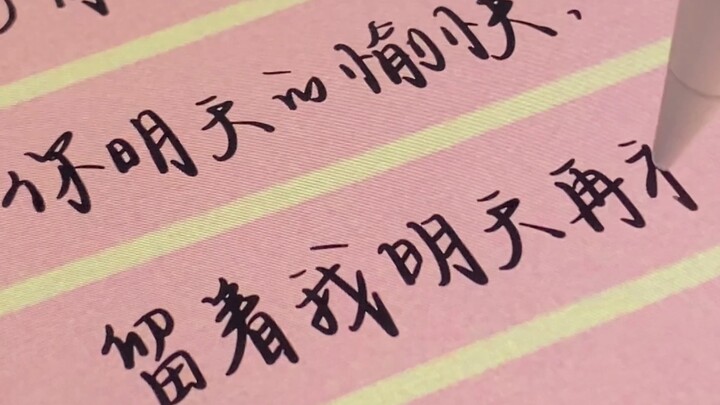 你明天的愉快,
留着我明天再